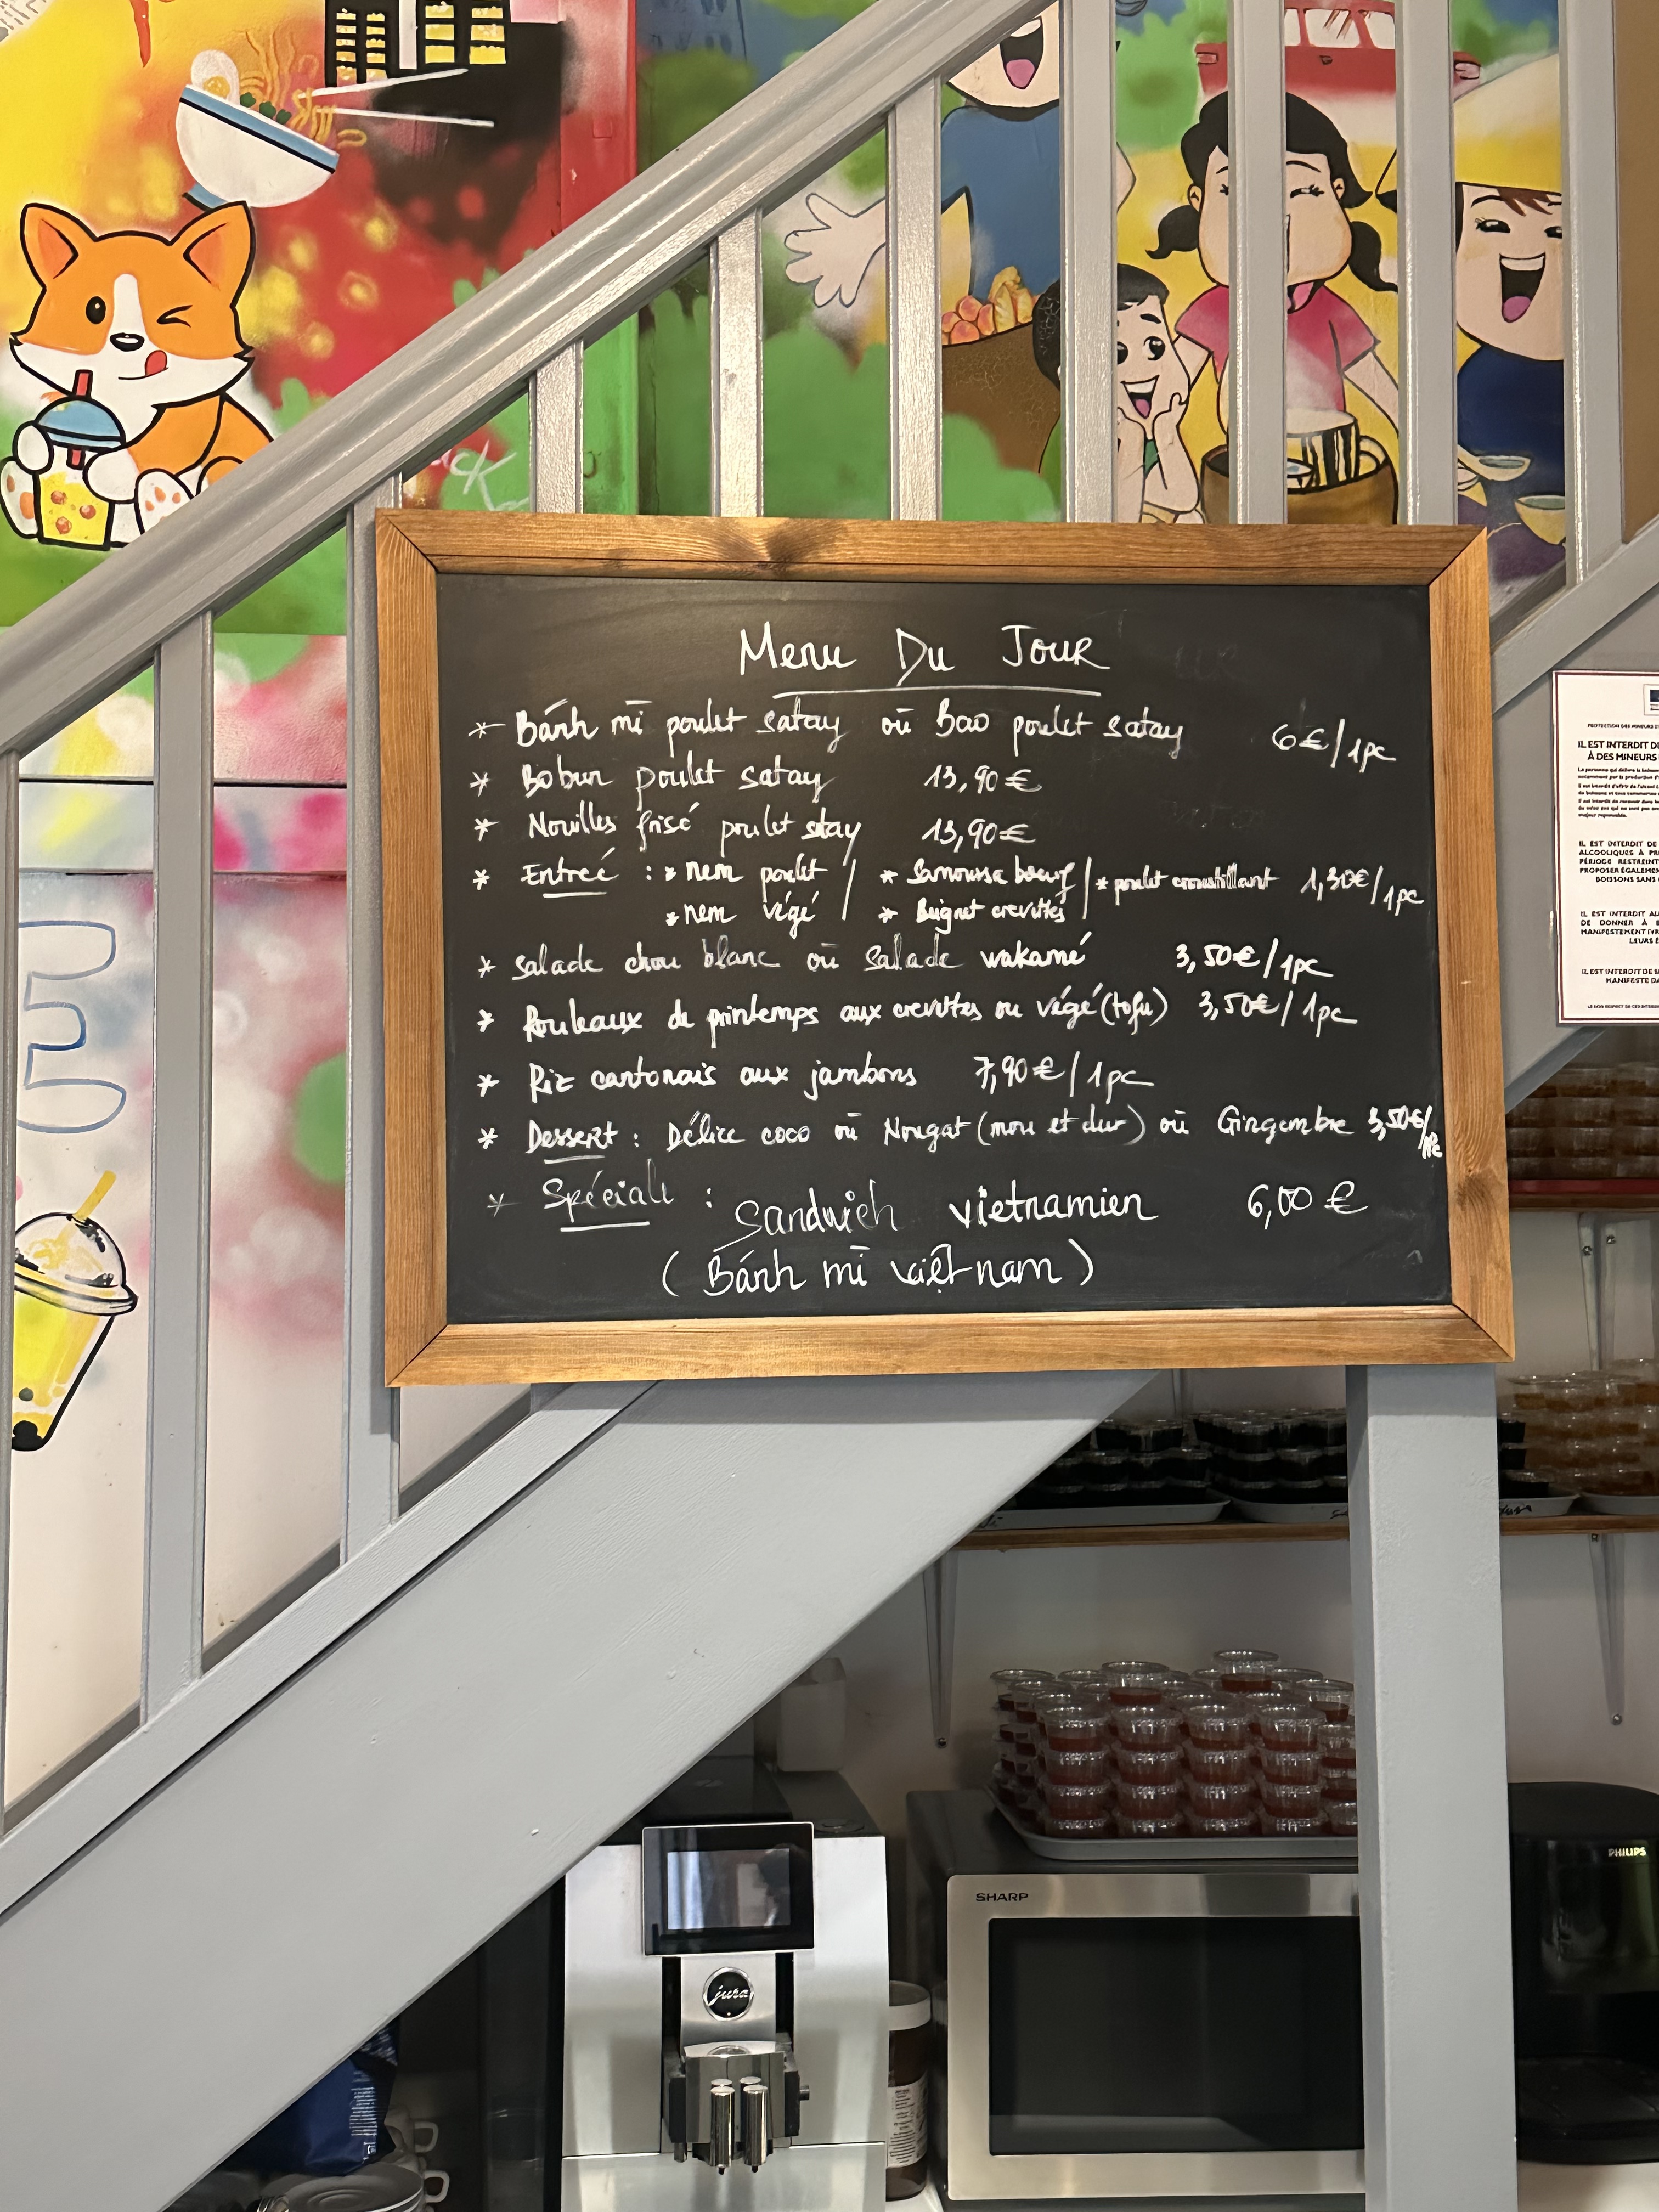 Menu Du Jour
* Bánh mī poulet satay oū Bao poulet satay 6€/1pc
* Bobun poulet satay 13,90€
* Nouilles frisé poulet stay 13,90€
* Entreé : * nem poulet / * Samoussa boeuf / * poulet croustillant 1,30€/1pc
* nem végé * Beignet crevettes
* Salade chou blanc oū Salade wakamé 3,50€/1pc
* Rouleaux de printemps aux crevettes ou végé (tofu) 3,50€/1pc
* Riz cantonais aux jambons 7,90€/1pc
* Dessert : Délice coco oū Nougat (mou et dur) oū Gingembre 3,50€/1pc
* Spéciale : Sandwich vietnamien 6,00 €
(Bánh mī việt nam)
E
PROTECTION DES MINEURS
IL EST INTERDIT
À DES MINEURS
IL EST INTERDIT DE
ALCOOLIQUES À
PÉRIODE RESTREINT
PROPOSER ÉGALEMEN
BOISSONS SANS
IL EST INTERDIT
DE DONNER À
MANIFESTEMENT
LEURS
IL EST INTERDIT DE
MANIFESTE
PHILIPS
SHARP
jura